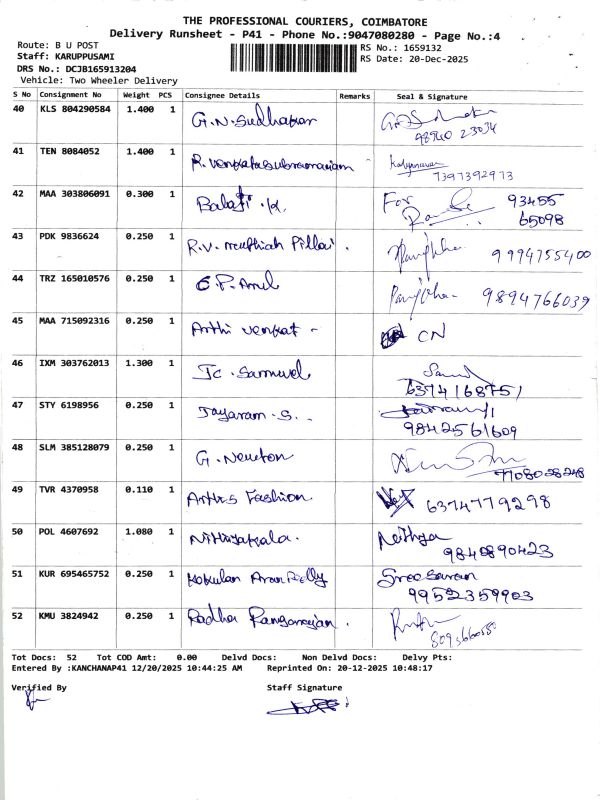 THE PROFESSIONAL COURIERS, COIMBATORE
Delivery Runsheet - P41 - Phone No.:9047080280 - Page No.:4
Route: B U POST
Staff: KARUPPUSAMI
DRS No.: DCJB165913204
Vehicle: Two Wheeler Delivery
RS No.: 1659132
RS Date: 20-Dec-2025
S No Consignment No Weight PCS Consignee Details Remarks Seal & Signature
40 KLS 804290584 1.400 1 G.N.Sudhakar
98940 23034
41 TEN 8084052 1.400 1 R. Venkatasubramaniam
7397392973
42 MAA 303806091 0.300 1 Balaji .K. For 93455
65098
43 PDK 9836624 0.250 1 R.V. Muthiah Pillai . 9994755400
44 TRZ 165010576 0.250 1 9894766039
45 MAA 715092316 0.250 1 Arthi Venkat - CN
46 IXM 303762013 1.300 1 Jc . Samuvel Sam
6374168751
47 STY 6198956 0.250 1 Jayaram . S. .
9842561609
48 SLM 385128079 0.250 1 G. Newton
7708028248
49 TVR 4370958 0.110 1 Fashion 6374779298
50 POL 4607692 1.080 1 Nithyakala. Nithya
9840890423
51 KUR 695465752 0.250 1 Kokulan Sree Saran
9952359903
52 KMU 3824942 0.250 1 Radha Rangarajan .
Tot Docs: 52 Tot COD Amt: 0.00 Delvd Docs: Non Delvd Docs: Delvy Pts:
Entered By :KANCHANAP41 12/20/2025 10:44:25 AM Reprinted On: 20-12-2025 10:48:17
Verified By Staff Signature